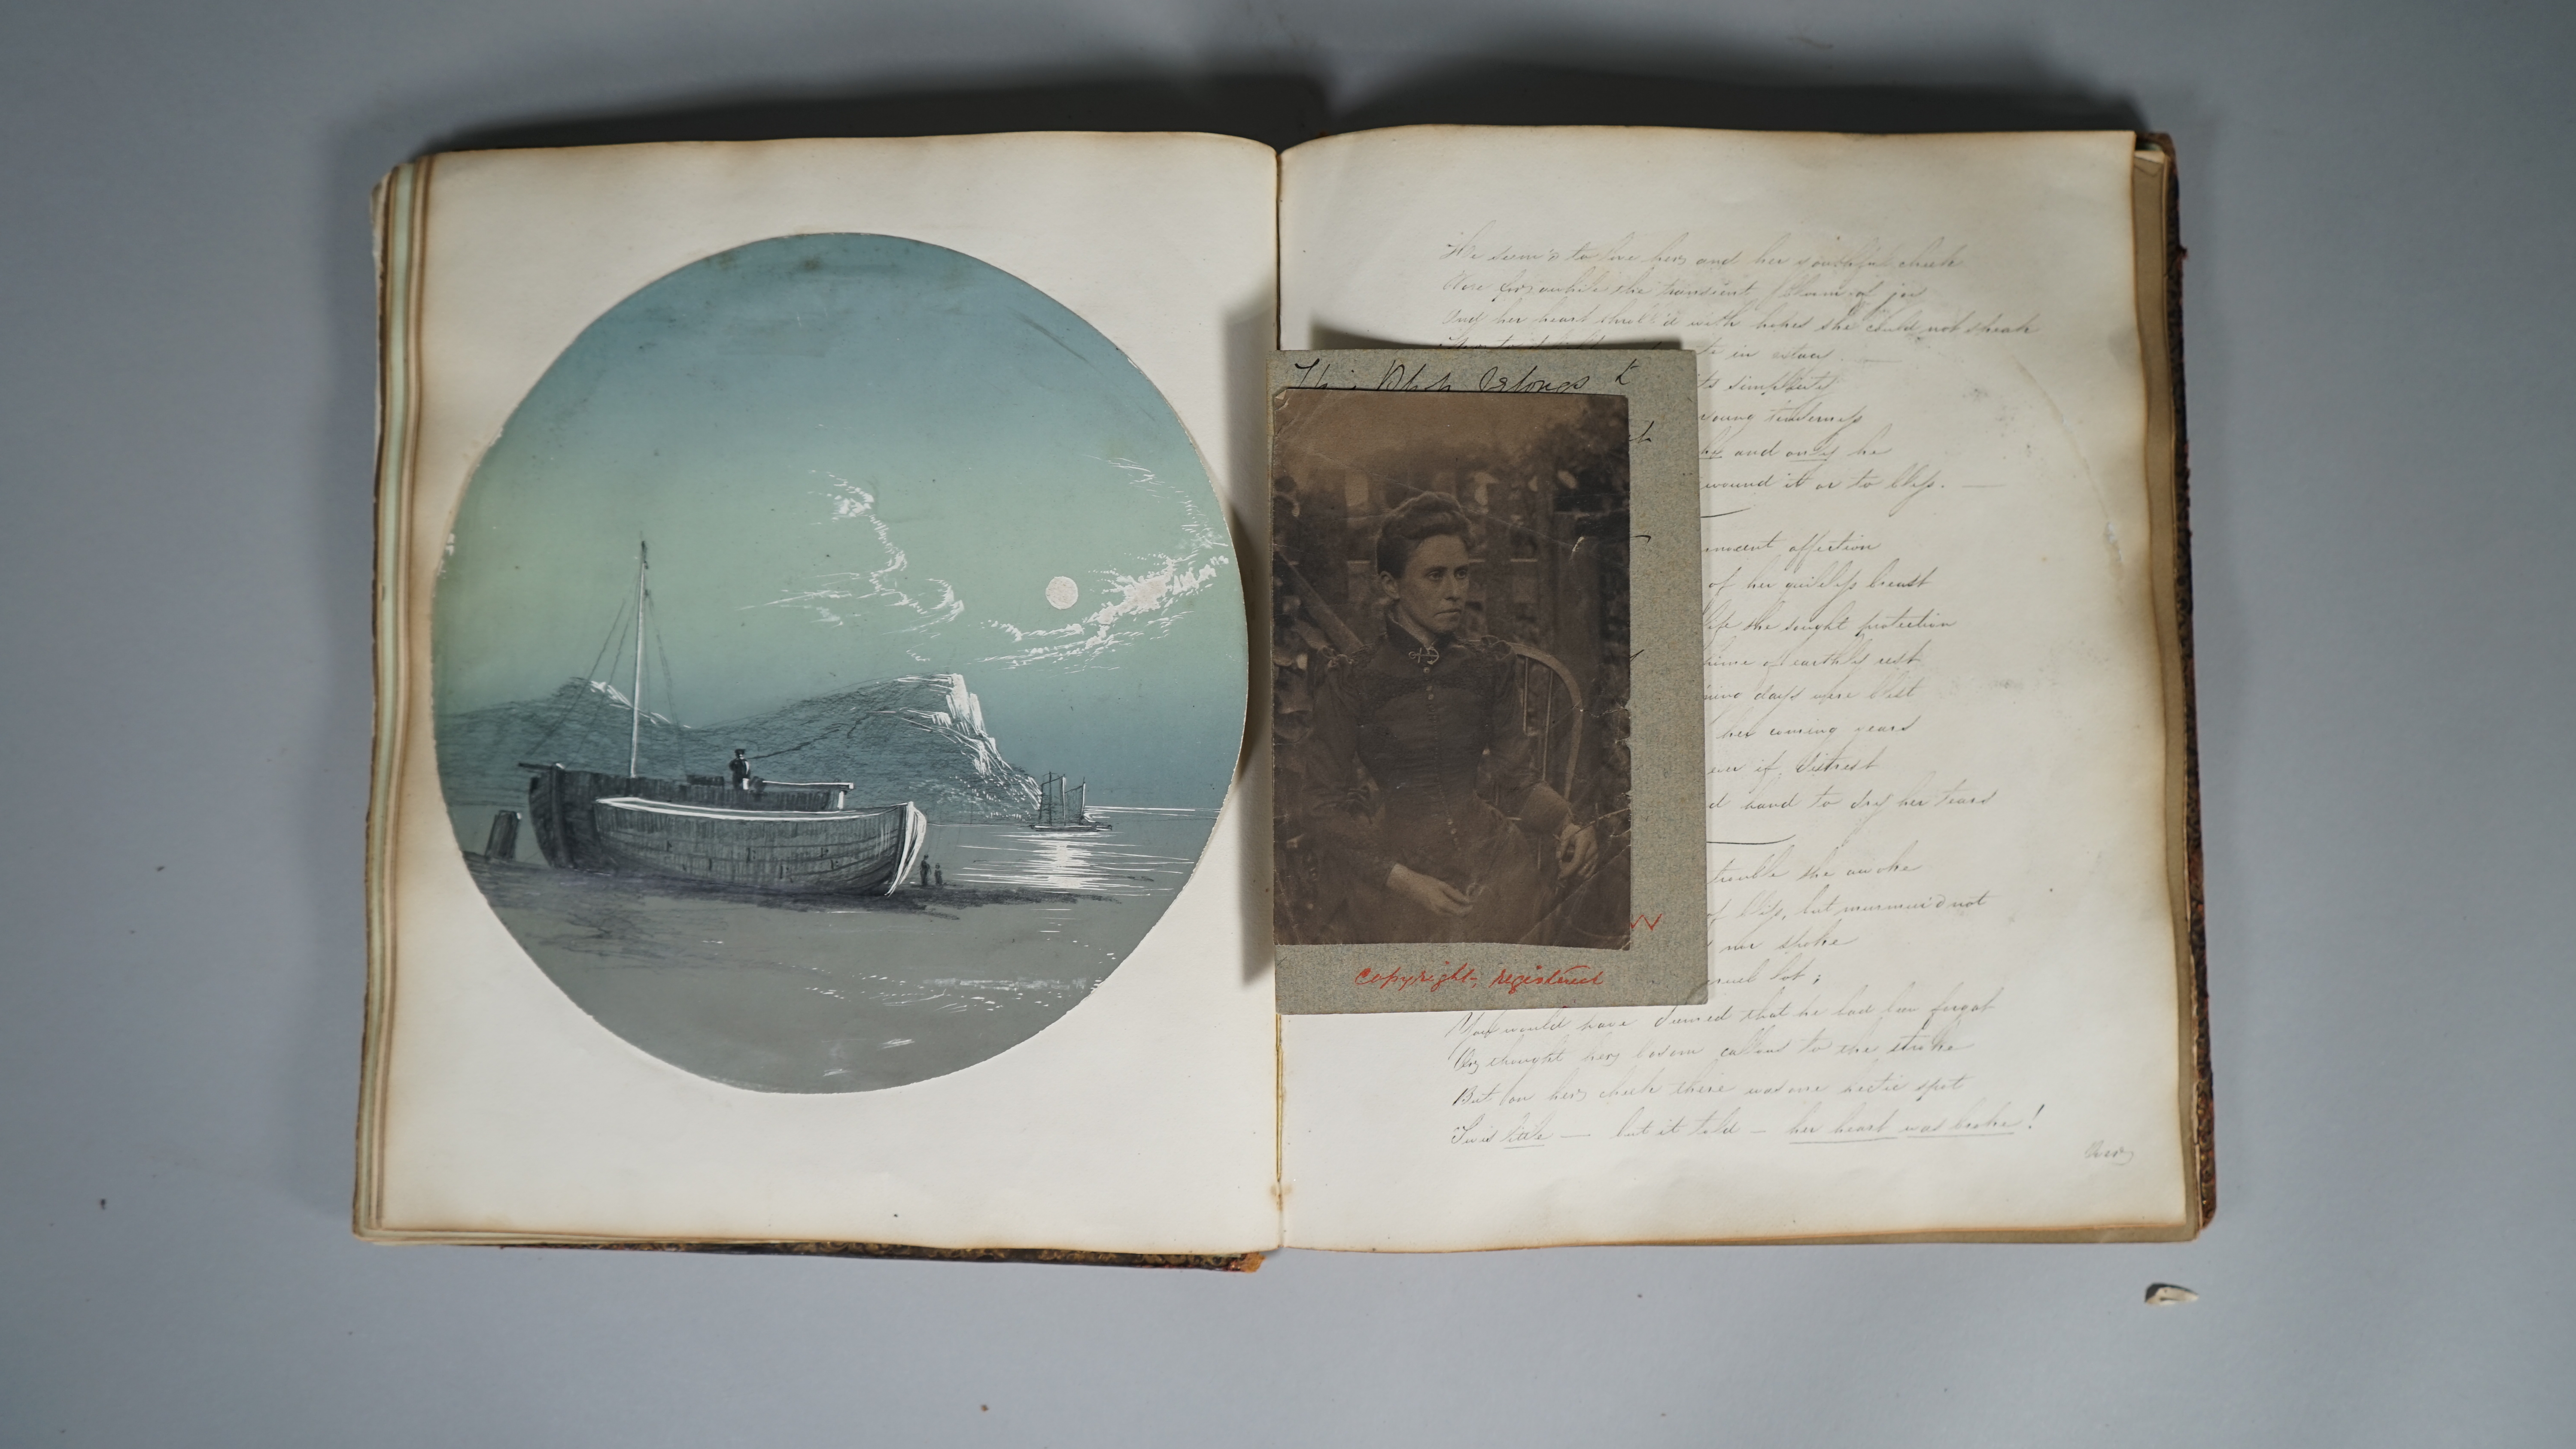 He seem'd to love her, and her youthful cheek
Wore for awhile the transient bloom of joy
And her heart throbb'd with hopes she could not speak
in extacy.
its simplicity
young tenderness
he and only he
wound it or to bless. —
innocent affection
of her guileless breast
life she sought protection
home of earthly rest
days were blest
her coming years
ever if, distrest
hand to dry her tears
trouble she awoke
of bliss, but murmur'd not
nor spoke
cruel lot;
You would have deemed that he had been forgot
Or thought her bosom callous to the stroke
But on her cheek there was one hectic spot
'Twas little — but it told — her heart was broke!
This Book belongs to
W
copyright, registered